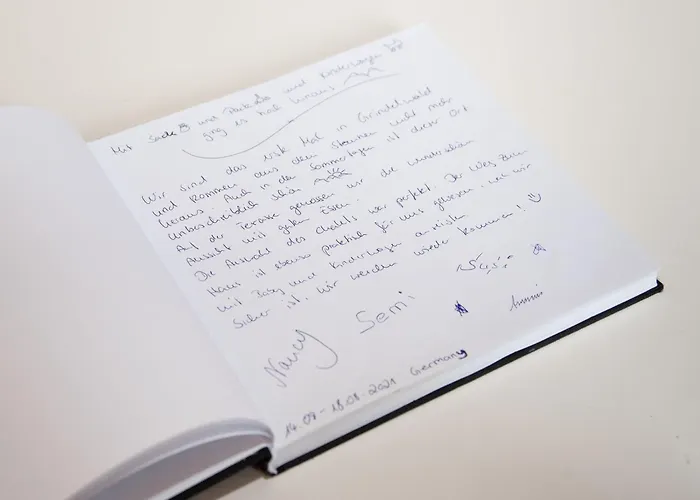 Mit Sack und Pack und Kinderwagen
ging es hoch hinaus
Wir sind das erste Mal in Grindelwald
und kommen aus dem Staunen nicht mehr
heraus. Auch in den Sommertagen ist dieser Ort
unbeschreiblich schön
Auf der Terasse genossen wir die wunderschöne
Aussicht mit gutem Essen.
Die Auswahl des Chalets war perfekt. Der Weg zum
Haus ist ebenso praktisch für uns gewesen, weil wir
mit Baby und Kinderwagen anreisten.
Sicher ist, wir werden wieder kommen! ☺
Nancy Semi
14.08-18.08.2021 Germany